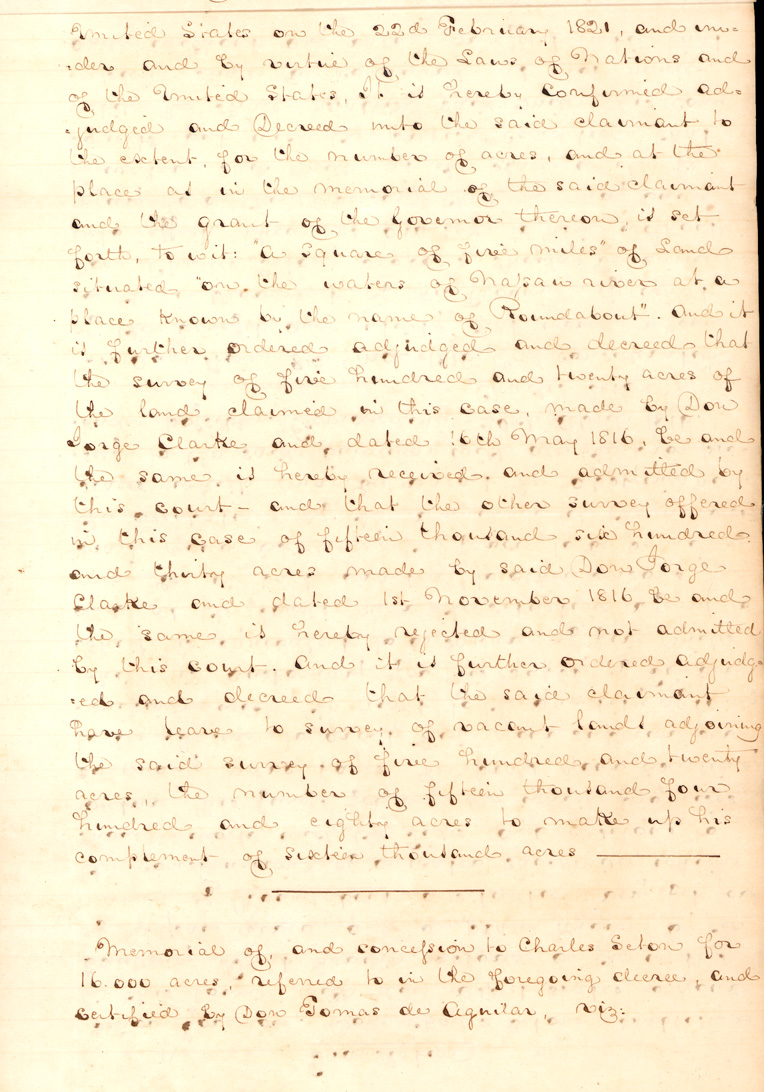 United States on the 22d February 1821, and un=
=der and by virtue of the Laws of Nations and
of the United States, It is hereby confirmed ad=
=judged and Decreed unto the said claimant to
the extent, for the number of acres, and at the
place as in the memorial of the said claimant
and the grant of the Governor thereon, is set
forth, to wit: "a square of five miles" of Land
situated "on the waters of Nassau river at a
place known by the name of Roundabout". And it
is further ordered adjudged and decreed that
the survey of five hundred and twenty acres of
the land claimed in this case, made by Don
Jorge Clarke and dated 16th May 1816, be and
the same is hereby received and admitted by
this court - and that the other survey offered
in this case of fifteen thousand six hundred
and thirty acres made by said Don Jorge
Clarke and dated 1st November 1816 be and
the same is hereby rejected and not admitted
by this court. And it is further ordered adjudg=
=ed and decreed that the said claimant
have leave to survey of vacant lands adjoining
the said survey of five hundred and twenty
acres, the number of fifteen thousand four
hundred and eighty acres to make up his
complement of sixteen thousand acres
Memorial of, and concession to Charles Seton for
16.000 acres, referred to in the foregoing decree, and
certified by Don Tomas de Aguilar, viz: